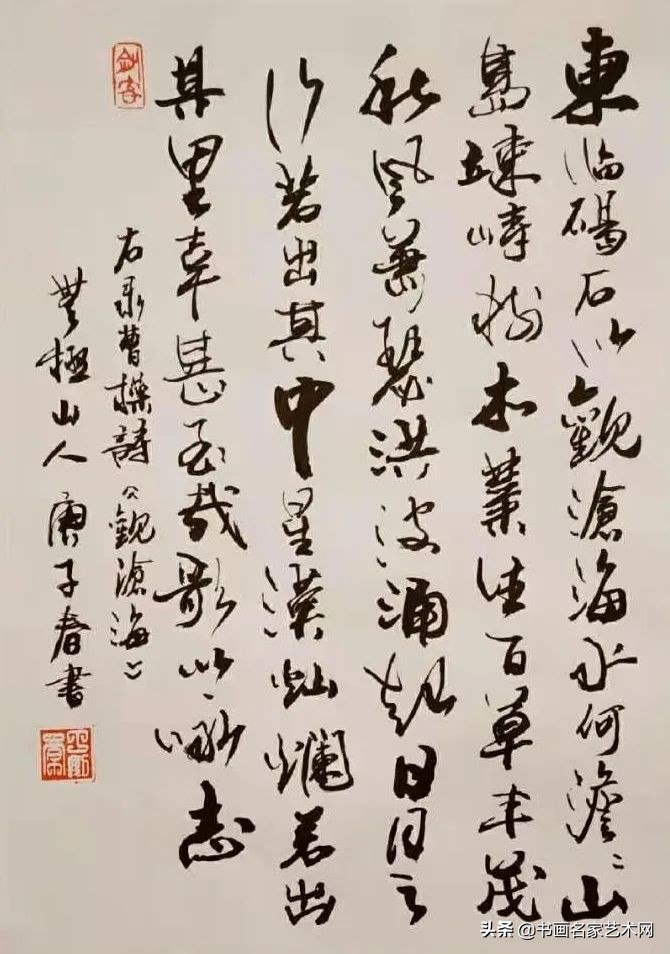 東临碣石以觀滄海水何澹〻山
島竦峙樹木叢生百草丰茂
秋風蕭瑟洪波涌起日月之
行若出其中星漢灿爛若出
其里幸甚至哉歌以咏志
右录曹操詩《觀滄海》
無極山人庚子春書
剑客
头条 @书画名家艺术网